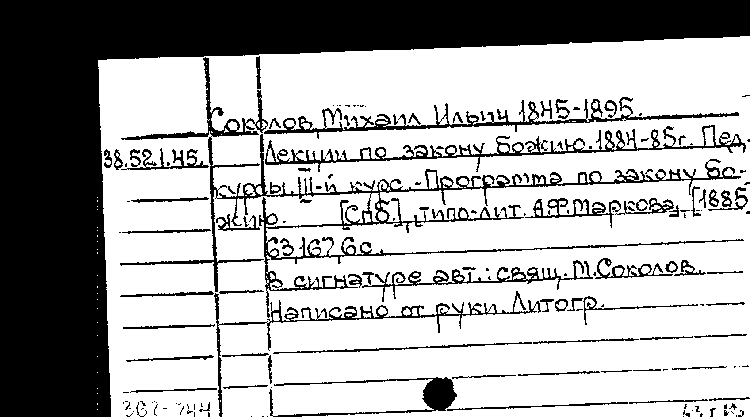 Соколов, Михаил Ильич, 1845-1895.
38.52.1.45. Лекции по закону божию. 1884-85г. Пед.
курсы. III-й курс. - Программа по закону бо-
жию. [Спб.], типо-лит. А.Ф. Маркова, [1885
63,167,6с.
В сигнатуре авт.: свящ. М. Соколов.
Написано от руки. Литогр.
367-744